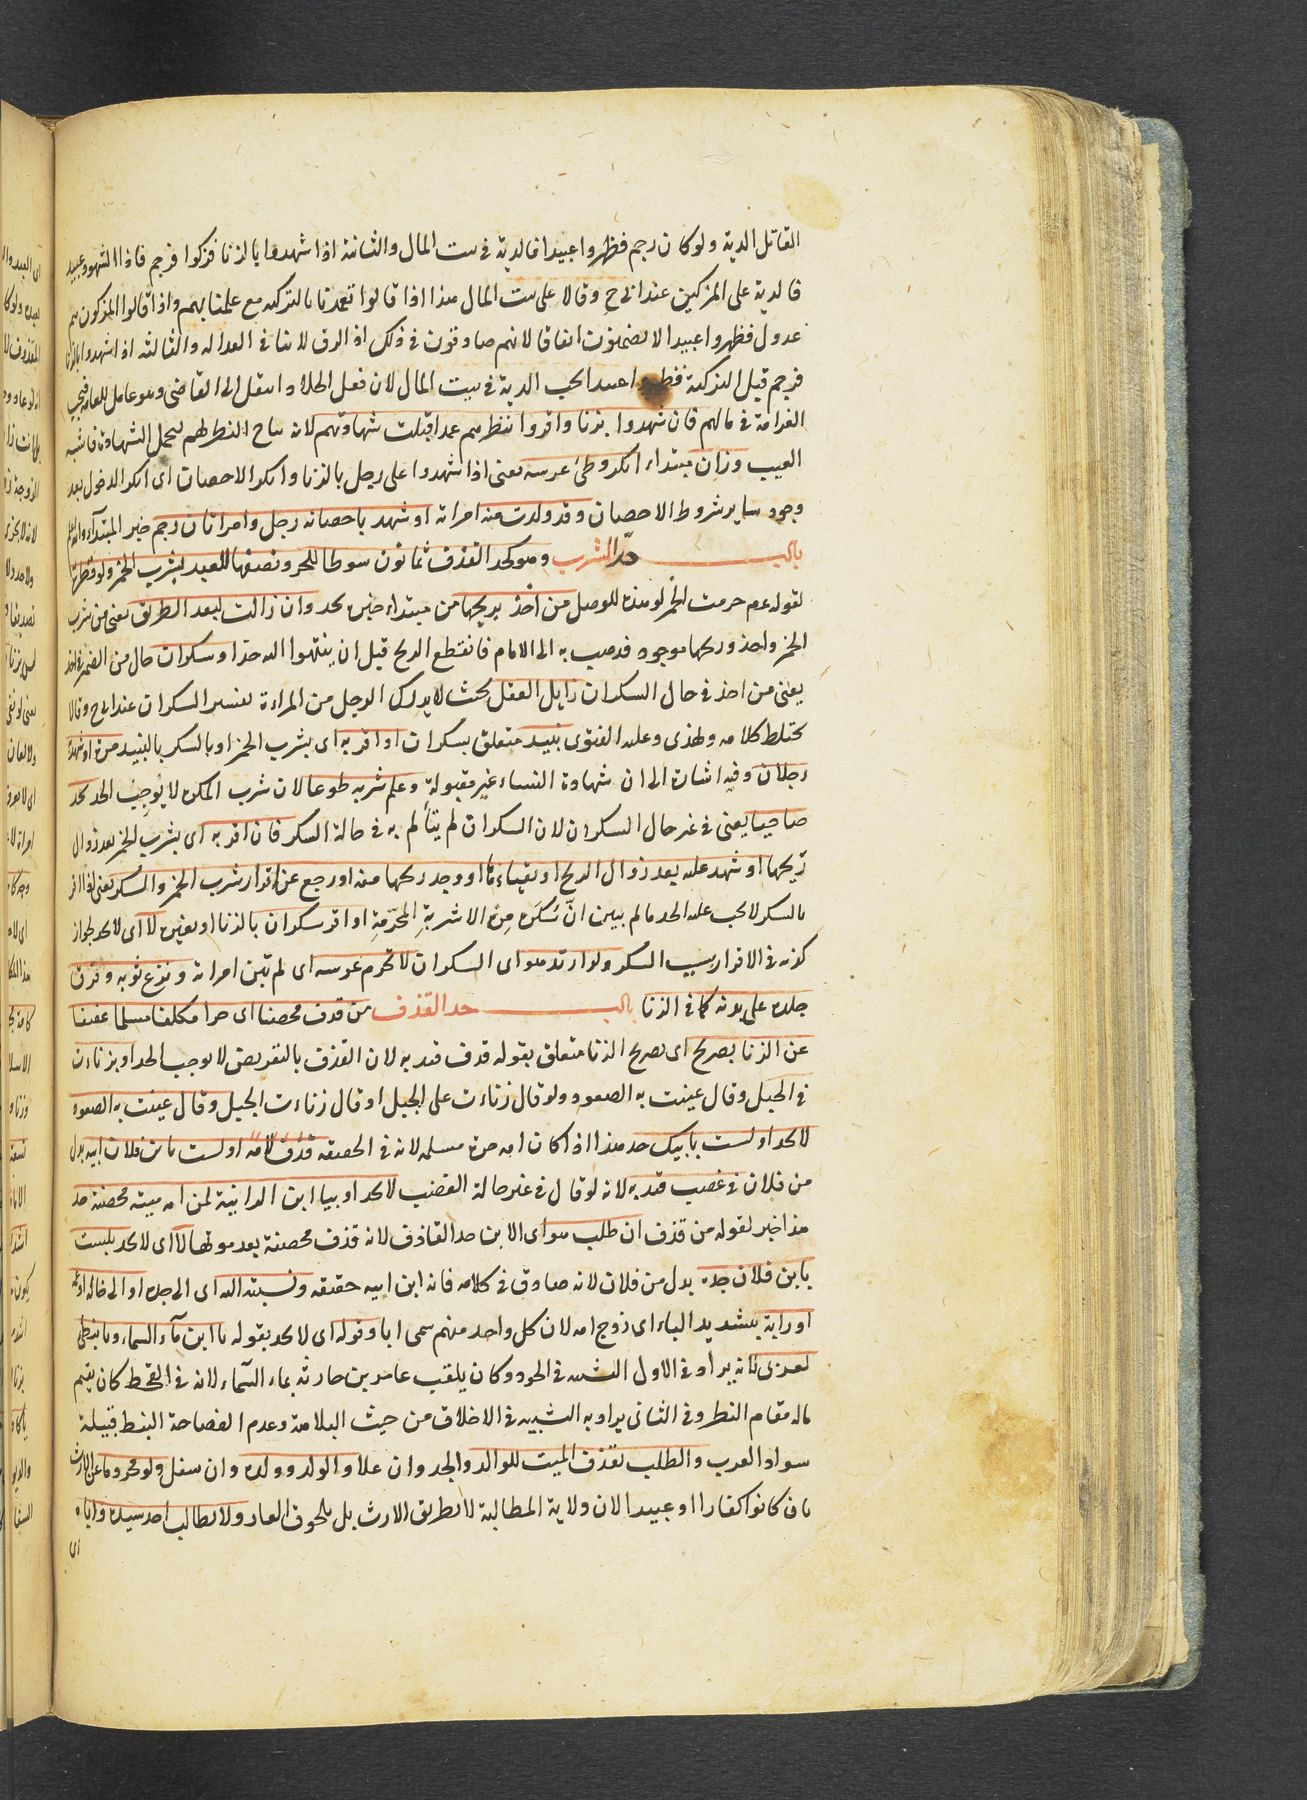 القاتل الدية ولو كان رجم فظهروا عبيدا فالدية في بيت المال والثانية اذا شهدوا بالزنا فزكوا فرجم فاذا الشهود عبيد
فالدية على المزكين عند ابي ح وقالا على بيت المال هذا اذا قالوا تعمدنا بالتزكية مع علمنا بهم واذا قالوا المزكون هم
عدول فظهروا عبيدا لا يضمنون اتفاقا لانهم صادقون في ذلك اذ الرق لا ينافي العدالة والثالثة اذا شهدوا بالزنا
فرجم قبل التزكية عبيدا يجب الدية في بيت المال لان فعل الجلاد انتقل الى القاضي وهو عامل للعامة فيجب
الغرامة في مالهم فان شهدوا بزنا واقروا بنظرهم عمدا قبلت شهادتهم لانه يباح النظر لهم لتحمل الشهادة فاشبه
الطبيب وزان مبتداء انكر وطئ عرسه يعني اذا شهدوا على رجل بالزنا وانكر الاحصان اى انكر الدخول بعد
وجود ساير شروط الاحصان وقد ولدت منه امراته او شهد باحصانه رجل وامراتان رجم خبر المبتدأ والله اعلم
باب حدّ الشرب وهو كحد القذف ثمانون سوطا للحر ونصفها للعبد بشرب الخمر ولو قطرة
لقوله عم حرمت الخمر لو هذه للوصل من اخذ بريحها من مبتداء خبره يحد وان زالت لبعد الطريق يعني من شرب
الخمر واخذ وريحها موجود فذهب به الى الامام فانقطع الريح قبل ان ينتهوا اليه حد او سكران حال من الضمير في اخذ
يعني من اخذ في حال السكران زايل العقل بحيث لا يدرك الرجل من المراءة تفسير السكران عند ابي ح وقالا
يختلط كلامه ويهذى وعليه الفتوى بنبيذ متعلق بسكران او اقر به اى بشرب الخمر او بالسكر بالنبيذ مرة او شهد
رجلان وفيه اشارة الى ان شهادة النساء غير مقبولة وعلم شربه طوعا لان شرب المكره لا يوجب الحد يحد
صاحيا يعني في غير حال السكران لان السكران لم يتألم به في حالة السكر فان اقر به اى بشرب الخمر بعد زوال
ريحها او شهد عليه بعد زوال الريح او تقياءها او وجد ريحها منه او رجع عن اقرار شرب الخمر والسكر يعني لو اقر
بالسكر لا يجب عليه الحد ما لم يبين انّ سُكرَه مِن الاشربةِ المحرّمةِ او اقر سكران بالزنا او بغيره لا اى لا يحد لجواز
كونه في الاقرار بسبب السكر ولو ارتد هو اى السكران لا تحرم عرسه اى لم تبن امراته ونزع ثوبه وفرق
جلده على بدنه كما في الزنا باب حد القذف من قذف محصنا اى حرا مكلفا مسلما عفيفا
عن الزنا بصريح اى بصريح الزنا متعلق بقوله قذف قيد به لان القذف بالتعريض لا يوجب الحد او بزناءت
في الجبل وقال عنيت به الصعود ولو قال زناءت على الجبل او قال زناءت الجبل وقال عنيت به الصعود
لا يحد او لست بابيك حد هذا اذا كان امه حرة مسلمة لانه في الحقيقة قذف لامه او لست بابن فلان ابيه بدل
من فلان في غضب قيد به لانه لو قال في غير حالة الغضب لا يحد او بيا ابن الزانية لمن امه ميتة محصنة حد
هذا خبر لقوله من قذف ان طلب هو اى الابن حد القاذف لانه قذف محصنة بعد موتها لا اى لا يحد بلست
بابن فلان جده بدل من فلان لانه صادق في كلامه فانه ابن ابيه حقيقة ونسبته اليه اى الى جده او الى خاله او عمه
او رابه بتشديد الباء اى زوج امه لان كل واحد منهم سمى ابا وقوله اى لا يحد بقوله يا ابن ماء السماء ويا نبطي
لعربي فانه يراد في الاول التشبيه في الجود وكان يلقب عامر بن حارثه بماء السّماء لانه في القحط كان يقيم
ماله مقام القطر وفي الثاني يراد به التشبيه في الاخلاق من حيث البلاهة وعدم الفصاحة النبط قبيلة
سواد العرب والطلب بقذف الميت للوالد والجد وان علا والولد وولده وان سفل ولو محروما عن الارث
بان كانوا كفارا او عبيدا لان ولاية المطالبة لا بطريق الارث بل بلحوق العار ولا يطالب احد سيده واباه
اى